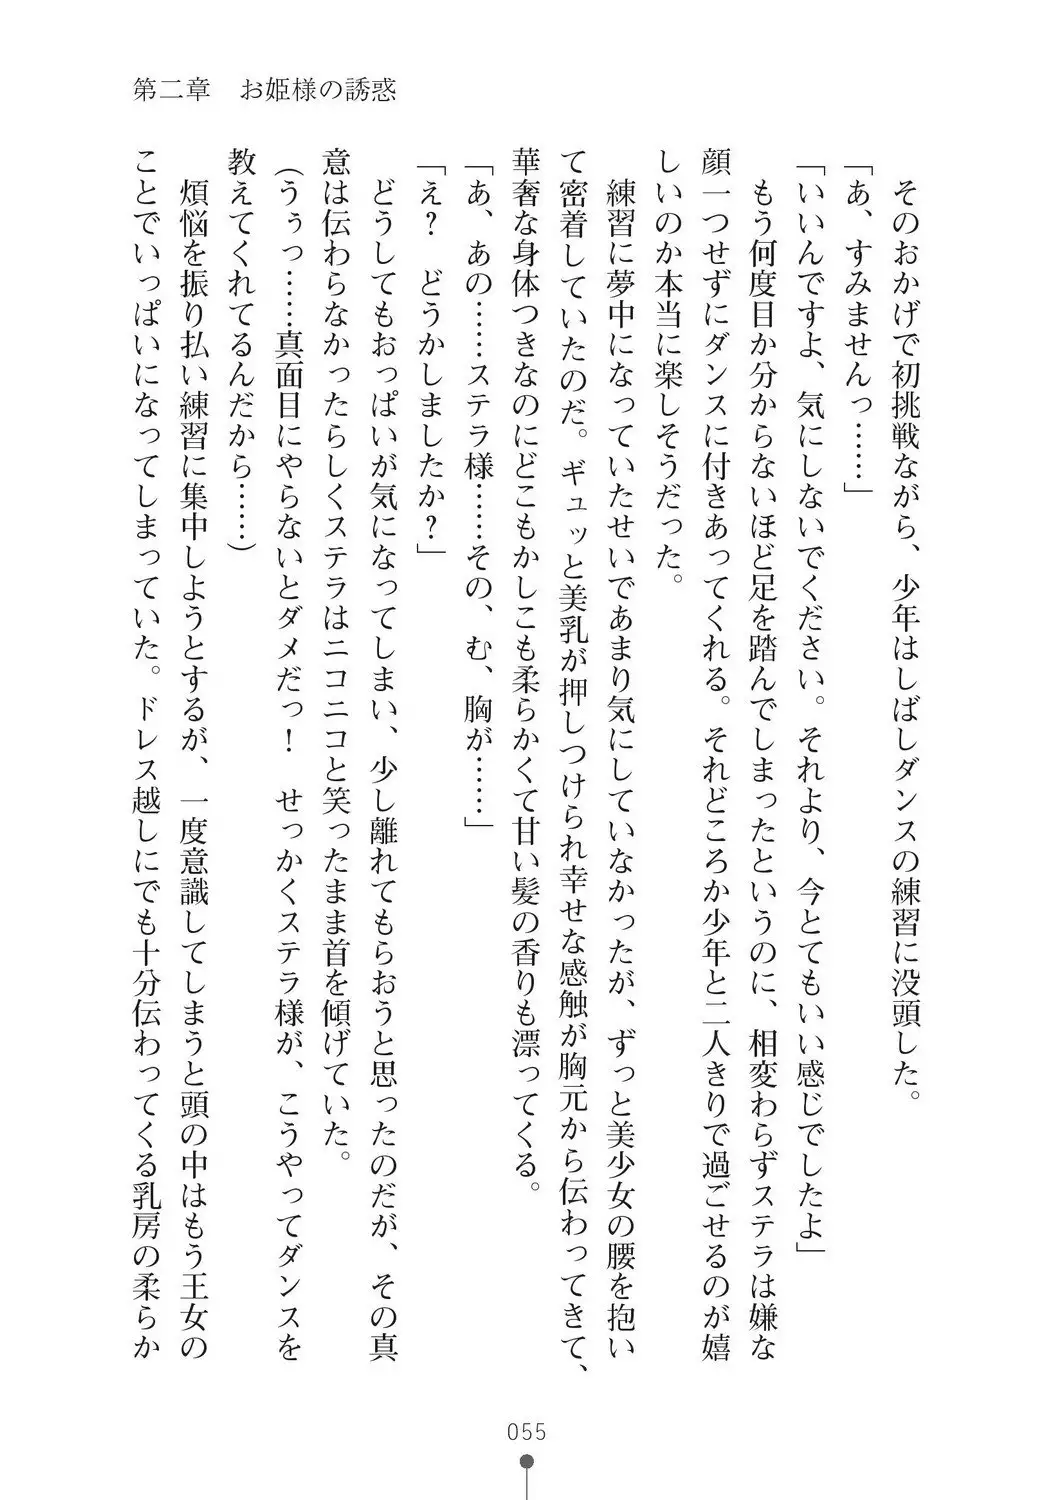 第二章　お姫様の誘惑
　そのおかげで初挑戦ながら、少年はしばしダンスの練習に没頭した。
「あ、すみませんっ……」
「いいんですよ、気にしないでください。それより、今とてもいい感じでしたよ」
　もう何度目か分からないほど足を踏んでしまったというのに、相変わらずステラは嫌な
顔一つせずにダンスに付きあってくれる。それどころか少年と二人きりで過ごせるのが嬉
しいのか本当に楽しそうだった。
　練習に夢中になっていたせいであまり気にしていなかったが、ずっと美少女の腰を抱い
て密着していたのだ。ギュッと美乳が押しつけられ幸せな感触が胸元から伝わってきて、
華奢な身体つきなのにどこもかしこも柔らかくて甘い髪の香りも漂ってくる。
「あ、あの……ステラ様……その、む、胸が……」
「え？　どうかしましたか？」
　どうしてもおっぱいが気になってしまい、少し離れてもらおうと思ったのだが、その真
意は伝わらなかったらしくステラはニコニコと笑ったまま首を傾げていた。
（うぅっ……真面目にやらないとダメだっ！　せっかくステラ様が、こうやってダンスを
教えてくれてるんだから……）
　煩悩を振り払い練習に集中しようとするが、一度意識してしまうと頭の中はもう王女の
ことでいっぱいになってしまっていた。ドレス越しにでも十分伝わってくる乳房の柔らか
055